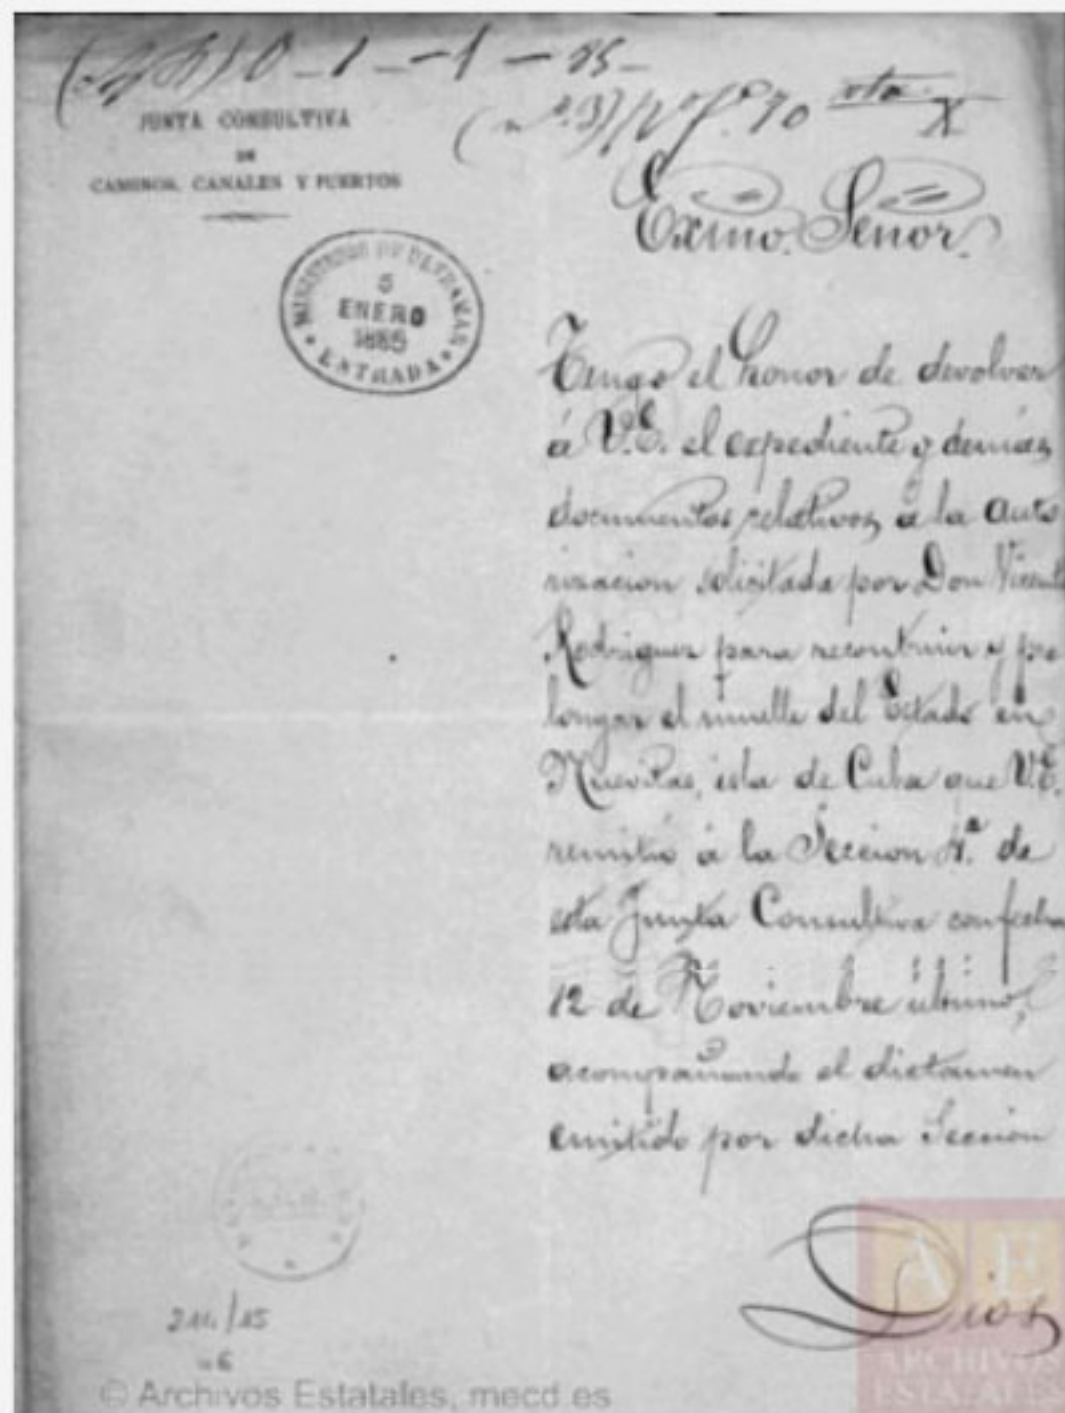 0-1-1-85-
JUNTA CONSULTIVA
DE
CAMINOS, CANALES Y PUERTOS
Exmo. Señor.
MINISTERIO DE ULTRAMAR
5
ENERO
1885
ENTRADA
Tengo el honor de devolver
á V.E. el expediente y demás
documentos relativos á la auto
rizacion solicitada por Don Vicente
Rodriguez para reconstruir y pro
longar el muelle del Estado en
Nuevitas, isla de Cuba que V.E.
remitió á la Seccion 4ª de
esta Junta Consultiva con fecha
12 de Noviembre último,
acompañando el dictamen
emitido por dicha Seccion
Dios
© Archivos Estatales, mecd.es
AE
ARCHIVOS
ESTATALES